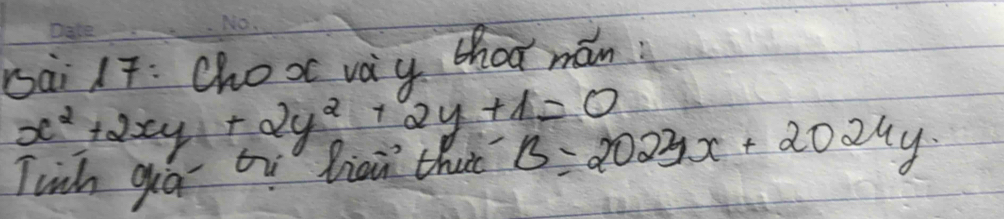 Date No.
Bài 17: Cho x và y thoả mãn:
x² + 2xy + 2y² + 2y + 1 = 0
Tính giá trị biểu thức B = 2023x + 2024y.